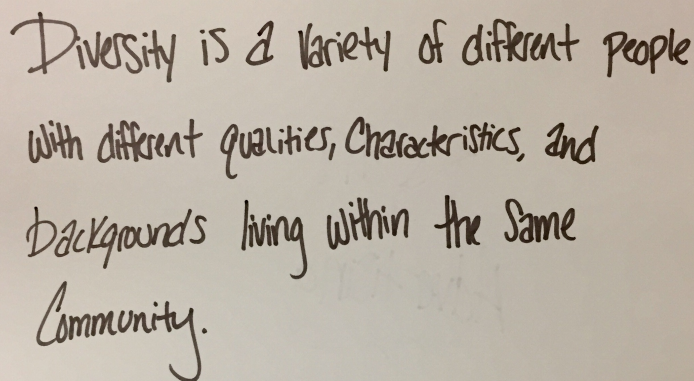 Diversity is a variety of different people
with different qualities, Characteristics, and
backgrounds living within the same
Community.